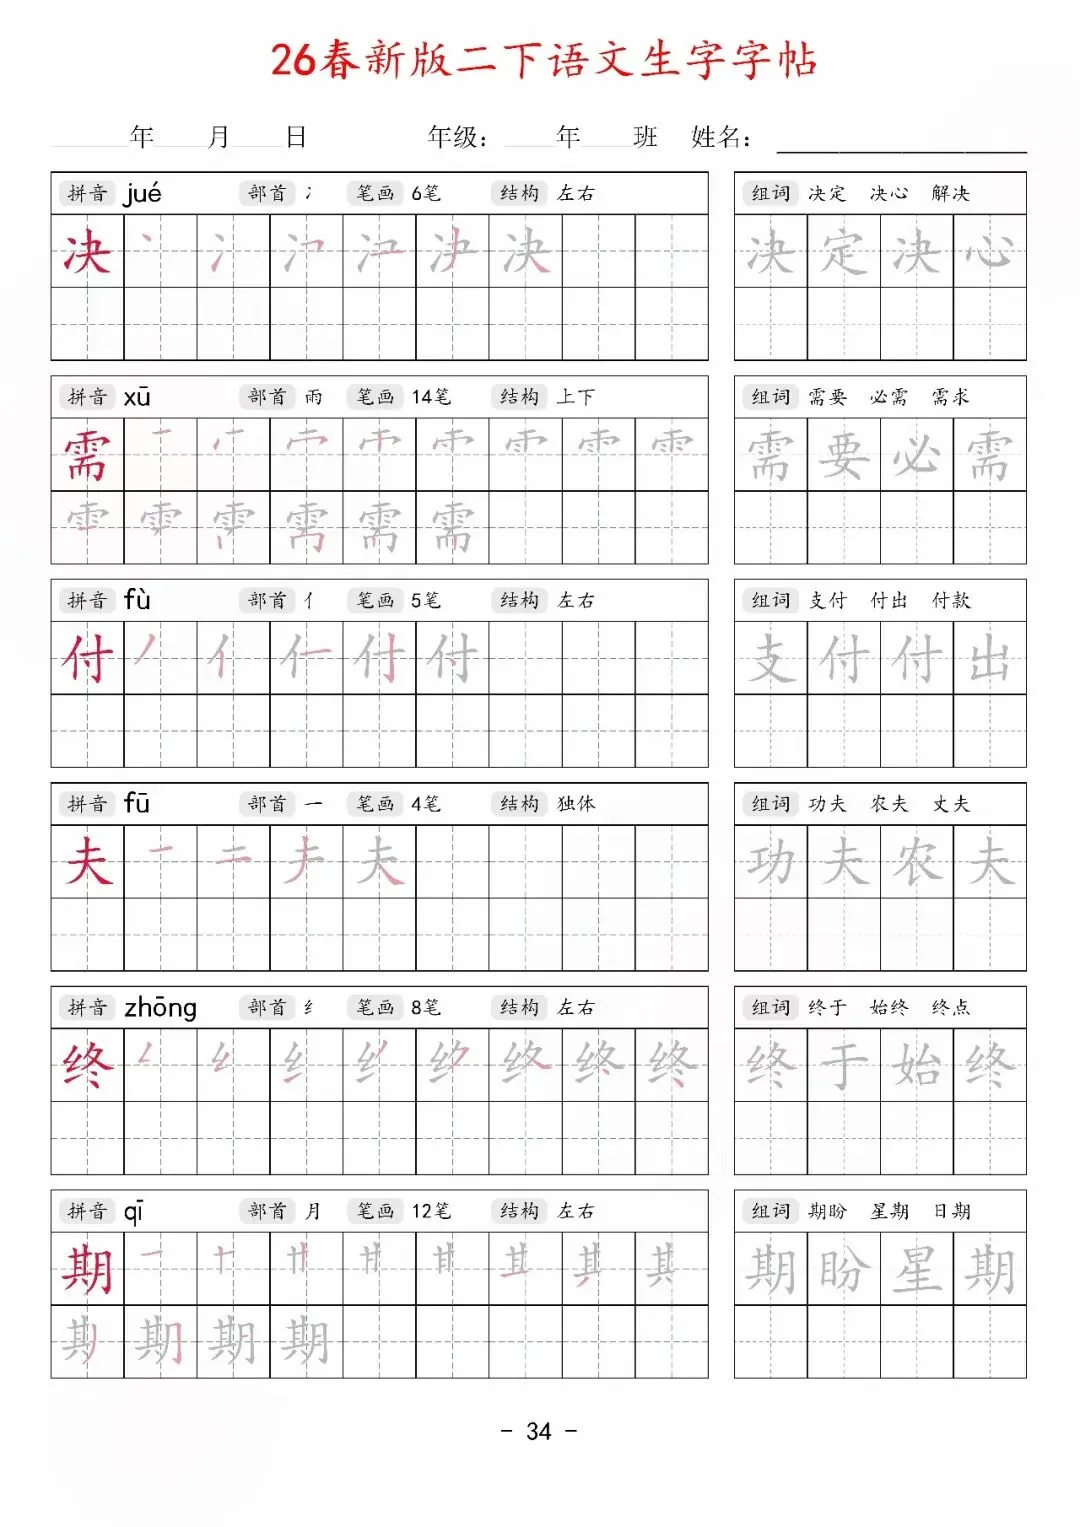 26春新版二下语文生字字帖
年 月 日 年级： 年 班 姓名：
拼音 jué 部首 冫 笔画 6笔 结构 左右 组词 决定 决心 解决
决 丶 冫 决 决 定 决 心
拼音 xū 部首 雨 笔画 14笔 结构 上下 组词 需要 必需 需求
需 需 要 必 需
需
拼音 fù 部首 亻 笔画 5笔 结构 左右 组词 支付 付出 付款
付 丿 亻 付 支 付 付 出
拼音 fū 部首 一 笔画 4笔 结构 独体 组词 功夫 农夫 丈夫
夫 一 二 夫 功 夫 农 夫
拼音 zhōng 部首 纟 笔画 8笔 结构 左右 组词 终于 始终 终点
终 纟 终 终 于 始 终
拼音 qī 部首 月 笔画 12笔 结构 左右 组词 期盼 星期 日期
期 一 十 廿 其 期 盼 星 期
期
- 34 -